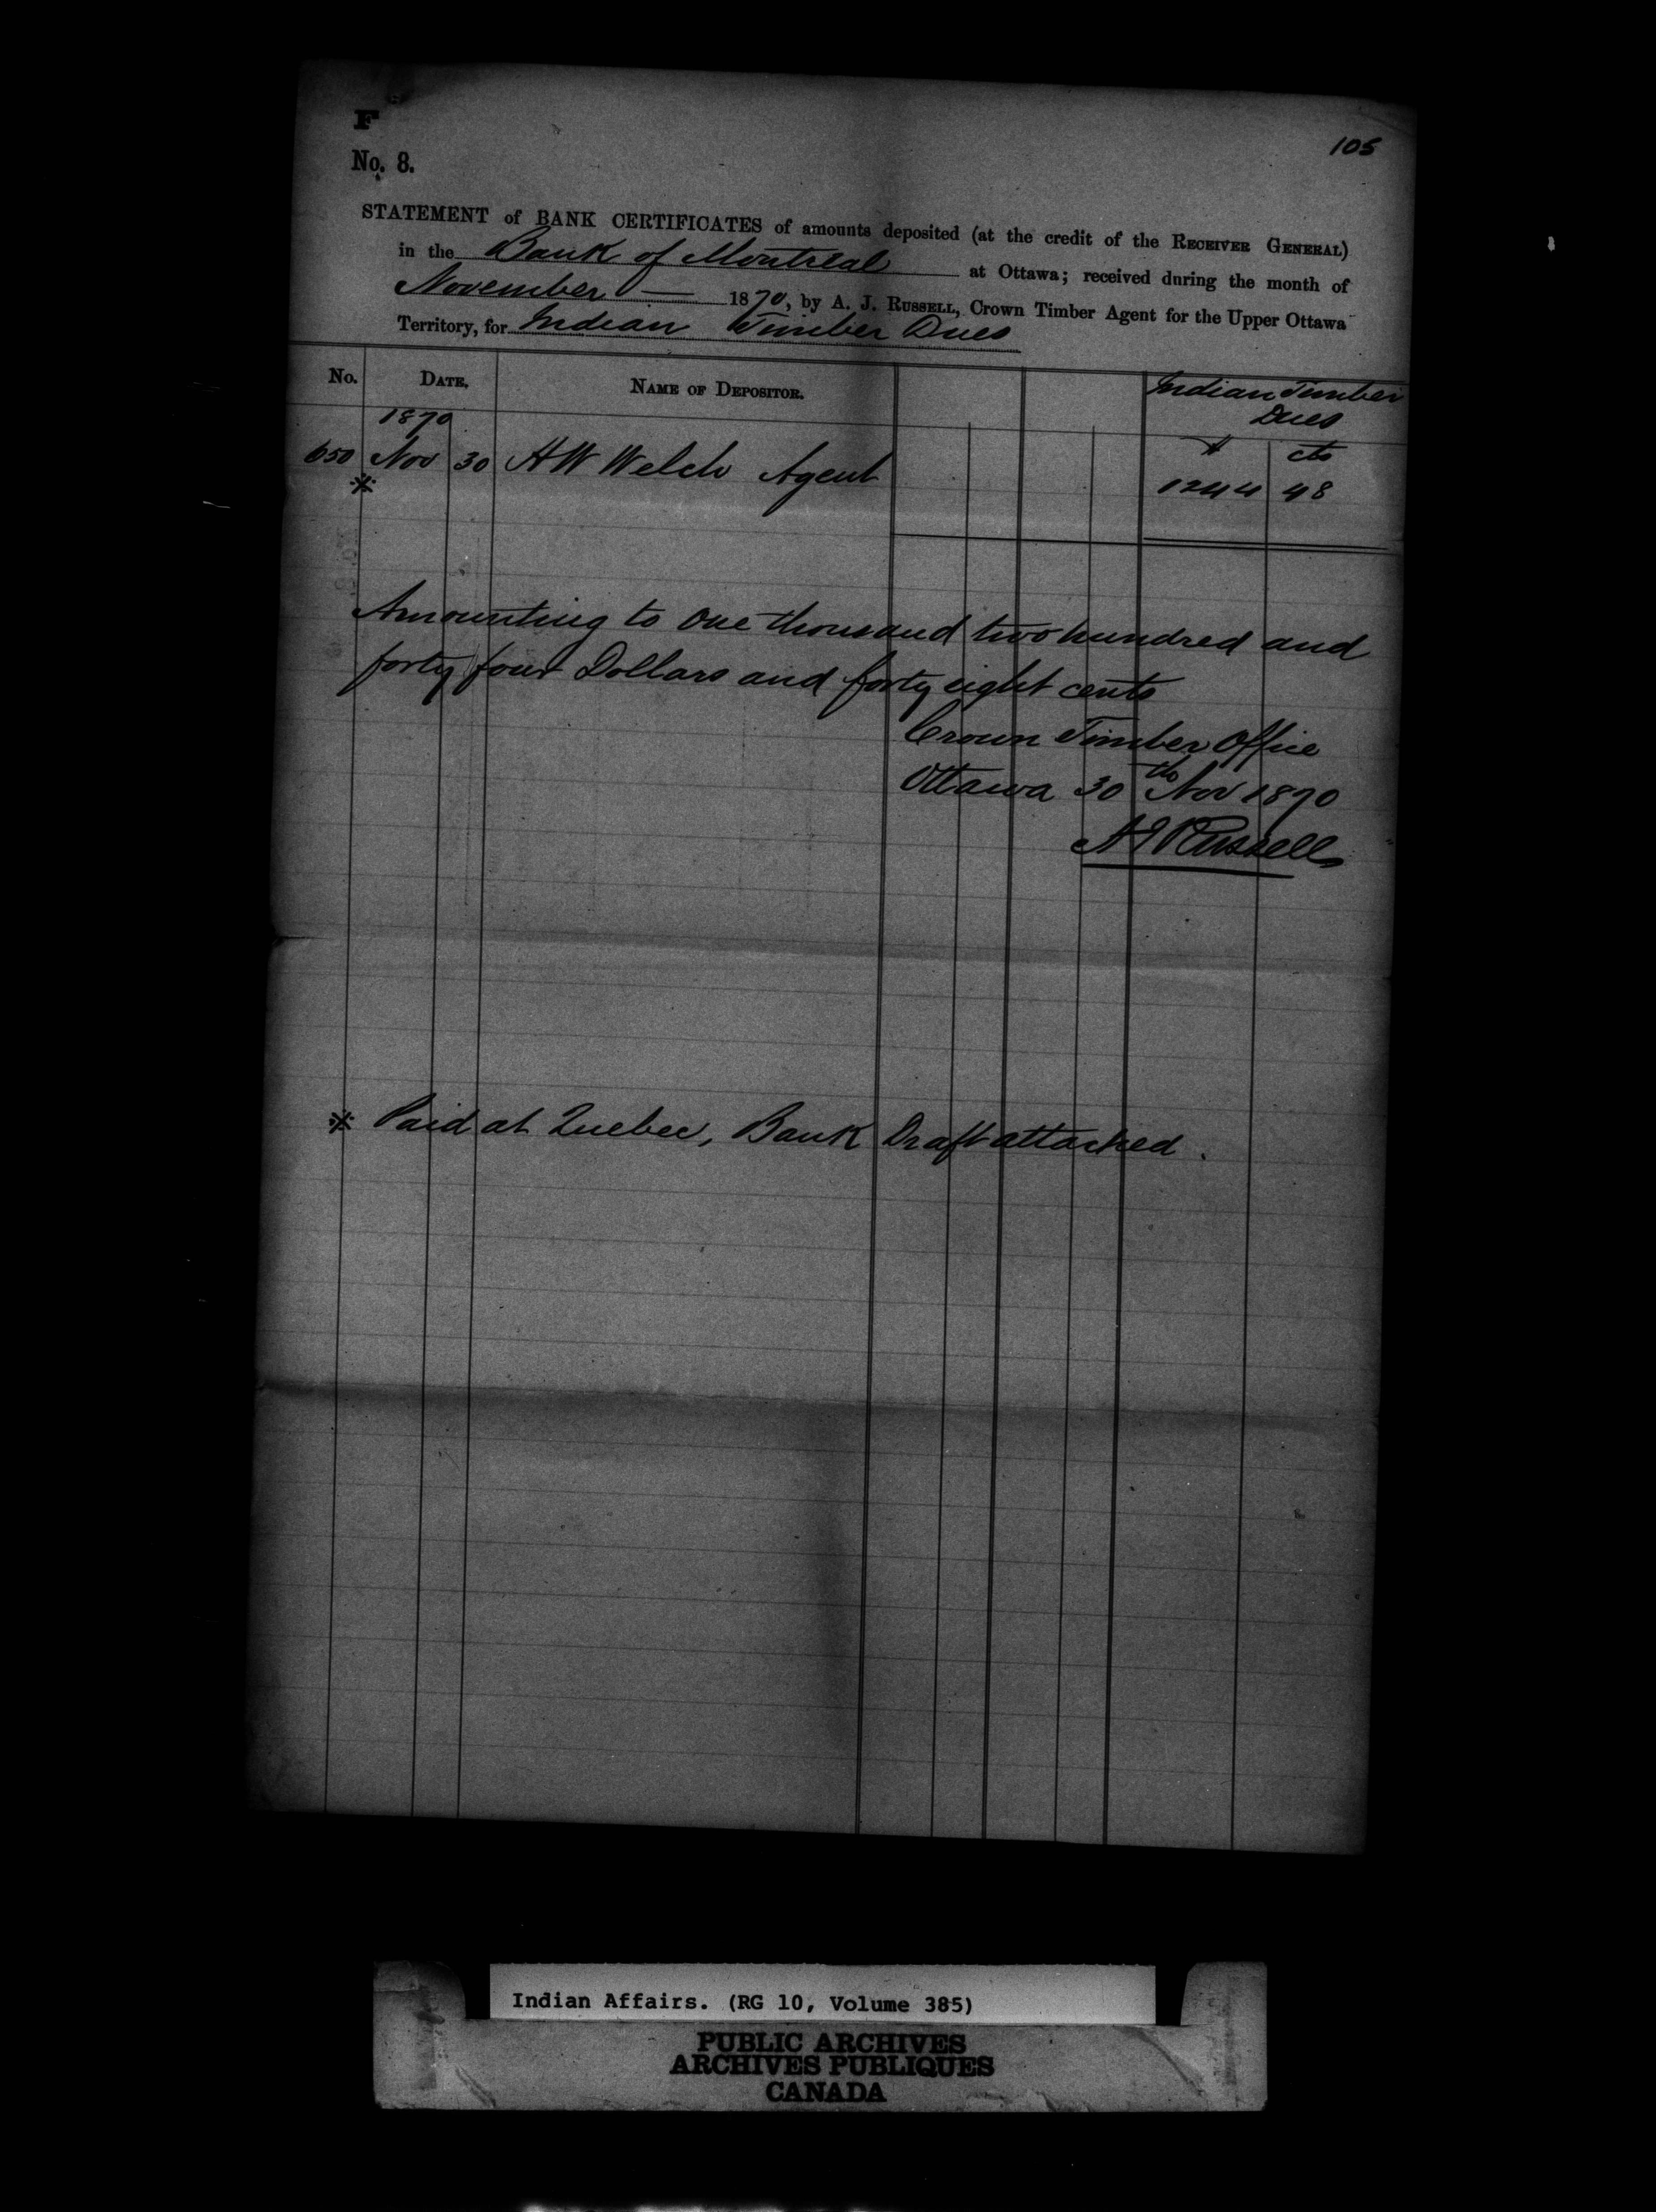 F
105
No. 8.
STATEMENT of BANK CERTIFICATES of amounts deposited (at the credit of the RECEIVER GENERAL)
in the Bank of Montreal at Ottawa; received during the month of
November — 1870, by A. J. RUSSELL, Crown Timber Agent for the Upper Ottawa
Territory, for Indian Timber Dues
No. DATE. NAME OF DEPOSITOR. Indian Timber
Dues
1870
$ cts
650 Nov 30 H W Welch Agent 1244 48
※
Amounting to One thousand two hundred and
forty four Dollars and forty eight cents
Crown Timber Office
Ottawa 30th Nov 1870
A J Russell
※ Paid at Quebec, Bank Draft attached.
Indian Affairs. (RG 10, Volume 385)
PUBLIC ARCHIVES
ARCHIVES PUBLIQUES
CANADA